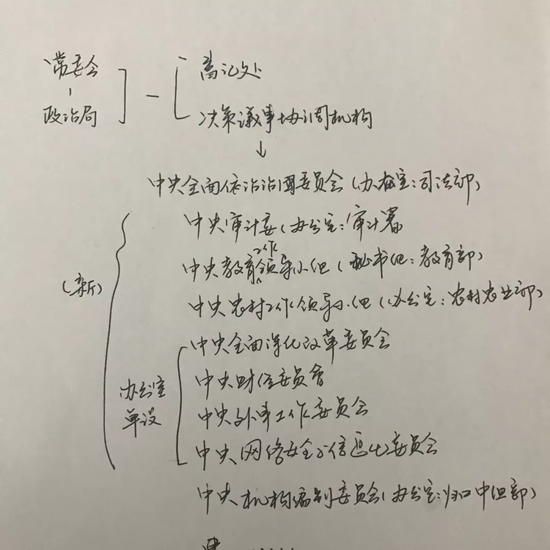 常委会
政治局
书记处
决策议事协调机构
中央全面依法治国委员会(办公室:司法部)
中央审计委(办公室:审计署
中央教育工作领导小组(秘书组:教育部)
(新)
中央农村工作领导小组(办公室:农村农业部)
中央全面深化改革委员会
办公室
单设
中央财经委员会
中央外事工作委员会
中央网络安全与信息化委员会
中央机构编制委员会(办公室:归口中组部)